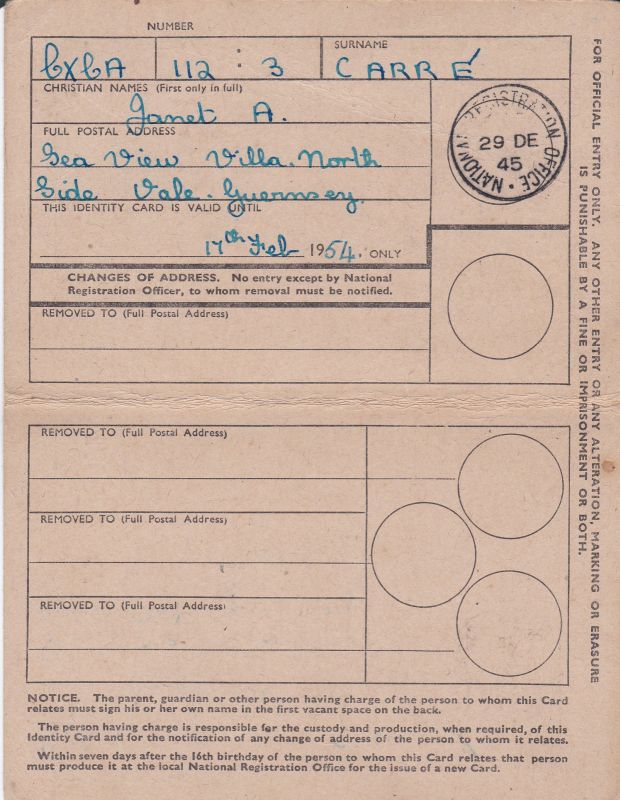 NUMBER
CXCA 112 : 3
SURNAME
CARRÉ
CHRISTIAN NAMES (First only in full)
Janet A.
FULL POSTAL ADDRESS
Sea View Villa. North
Side Vale. Guernsey.
THIS IDENTITY CARD IS VALID UNTIL
17th Feb 1954. ONLY
NATIONAL REGISTRATION OFFICE
29 DE
45
CHANGES OF ADDRESS. No entry except by National
Registration Officer, to whom removal must be notified.
REMOVED TO (Full Postal Address)
REMOVED TO (Full Postal Address)
REMOVED TO (Full Postal Address)
REMOVED TO (Full Postal Address)
FOR OFFICIAL ENTRY ONLY. ANY OTHER ENTRY OR ANY ALTERATION, MARKING OR ERASURE
IS PUNISHABLE BY A FINE OR IMPRISONMENT OR BOTH.
NOTICE. The parent, guardian or other person having charge of the person to whom this Card
relates must sign his or her own name in the first vacant space on the back.
The person having charge is responsible for the custody and production, when required, of this
Identity Card and for the notification of any change of address of the person to whom it relates.
Within seven days after the 16th birthday of the person to whom this Card relates that person
must produce it at the local National Registration Office for the issue of a new Card.